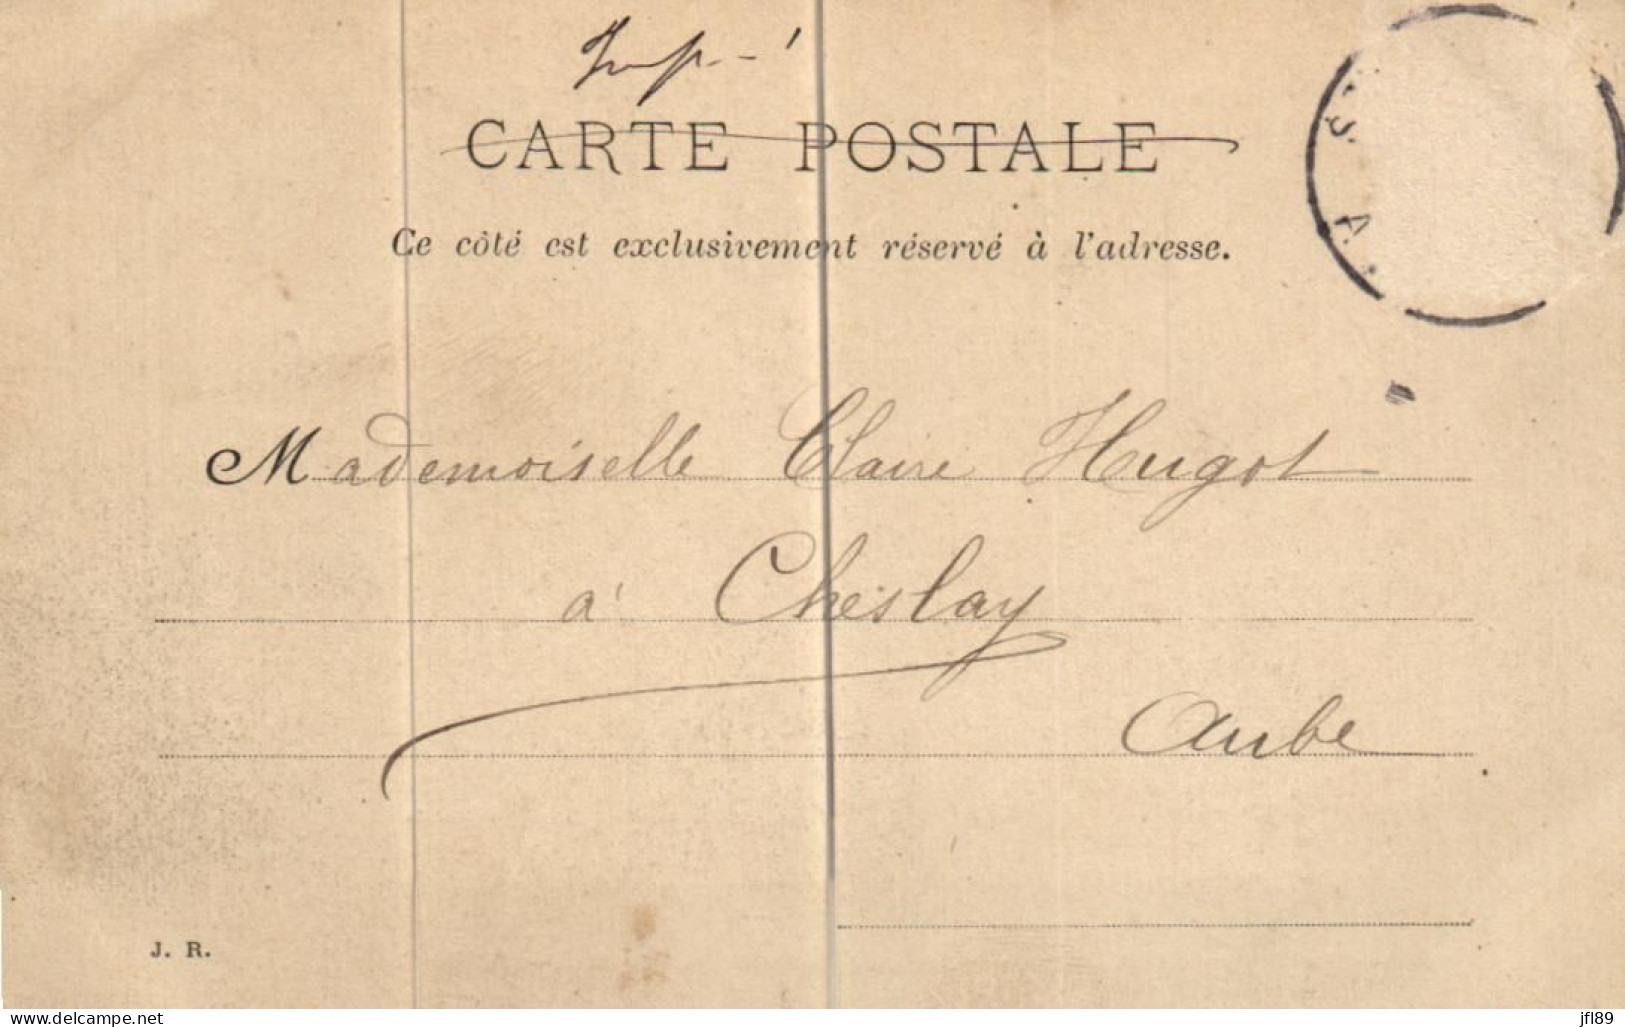 Imp-é
CARTE POSTALE
Ce côté est exclusivement réservé à l'adresse.
Mademoiselle Claire Hugot
à Cheslay
Aube
J. R.
www.delcampe.net
jfl89